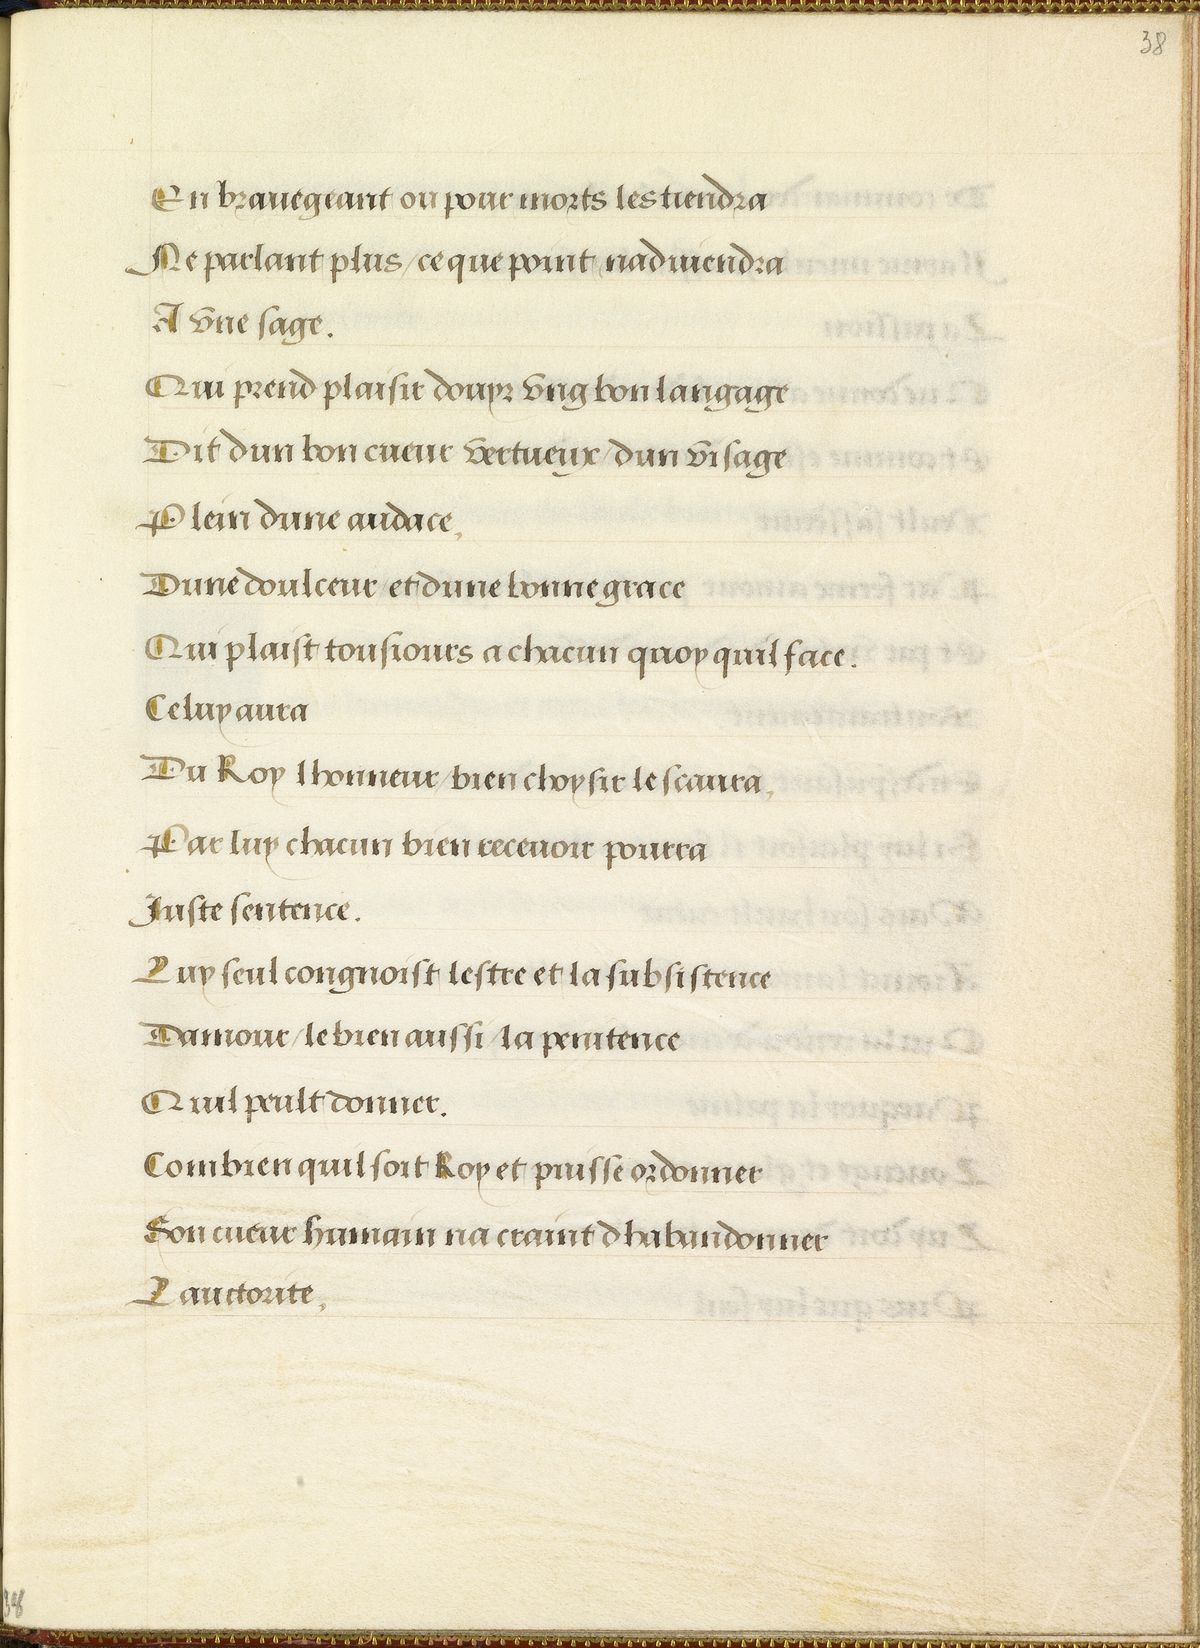 38
En brauegeant ou pour morts les tiendra
Ne parlant plus / ce que point naduiendra
A vne sage.
Qui prend plaisir douyr vng bon langage
Dit dun bon cueur vertueux / dun visage
Plein dune audace,
Dune doulceur et dune bonne grace
Qui plaist tousiours a chacun quoy quil face.
Celuy aura
Du Roy lhonneur / bien choysir le scaura,
Par luy chacun bien receuoir pourra
Juste sentence.
Luy seul congnoist lestre et la subsistence
Damour / le bien aussi / la penitence
Quil peult donner.
Combien quil soit Roy et puisse ordonner
Son cueur humain na craint dhabandonner
Lauctorite,
38